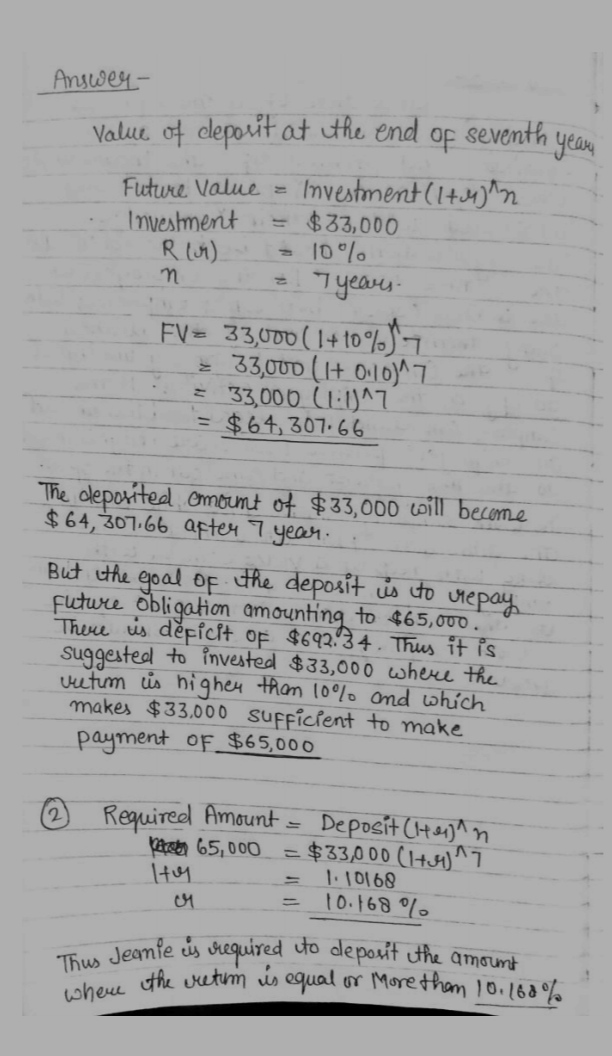 Answer -
Value of deposit at the end of seventh years
Future Value = Investment (1+r)^n
Investment = $33,000
R (r) = 10%
n = 7 years.
FV = 33,000 (1+10%)^7
= 33,000 (1+ 0.10)^7
= 33,000 (1.1)^7
= $64,307.66
The deposited amount of $33,000 will become
$64,307.66 after 7 year.
But the goal of the deposit is to repay
future obligation amounting to $65,000.
There is deficit of $692.34. Thus it is
suggested to invested $33,000 where the
return is higher than 10% and which
makes $33,000 sufficient to make
payment of $65,000
② Required Amount = Deposit (1+r)^n
65,000 = $33,000 (1+r)^7
1+r = 1.10168
r = 10.168 %
Thus Jeanie is required to deposit the amount
where the return is equal or More than 10.168%